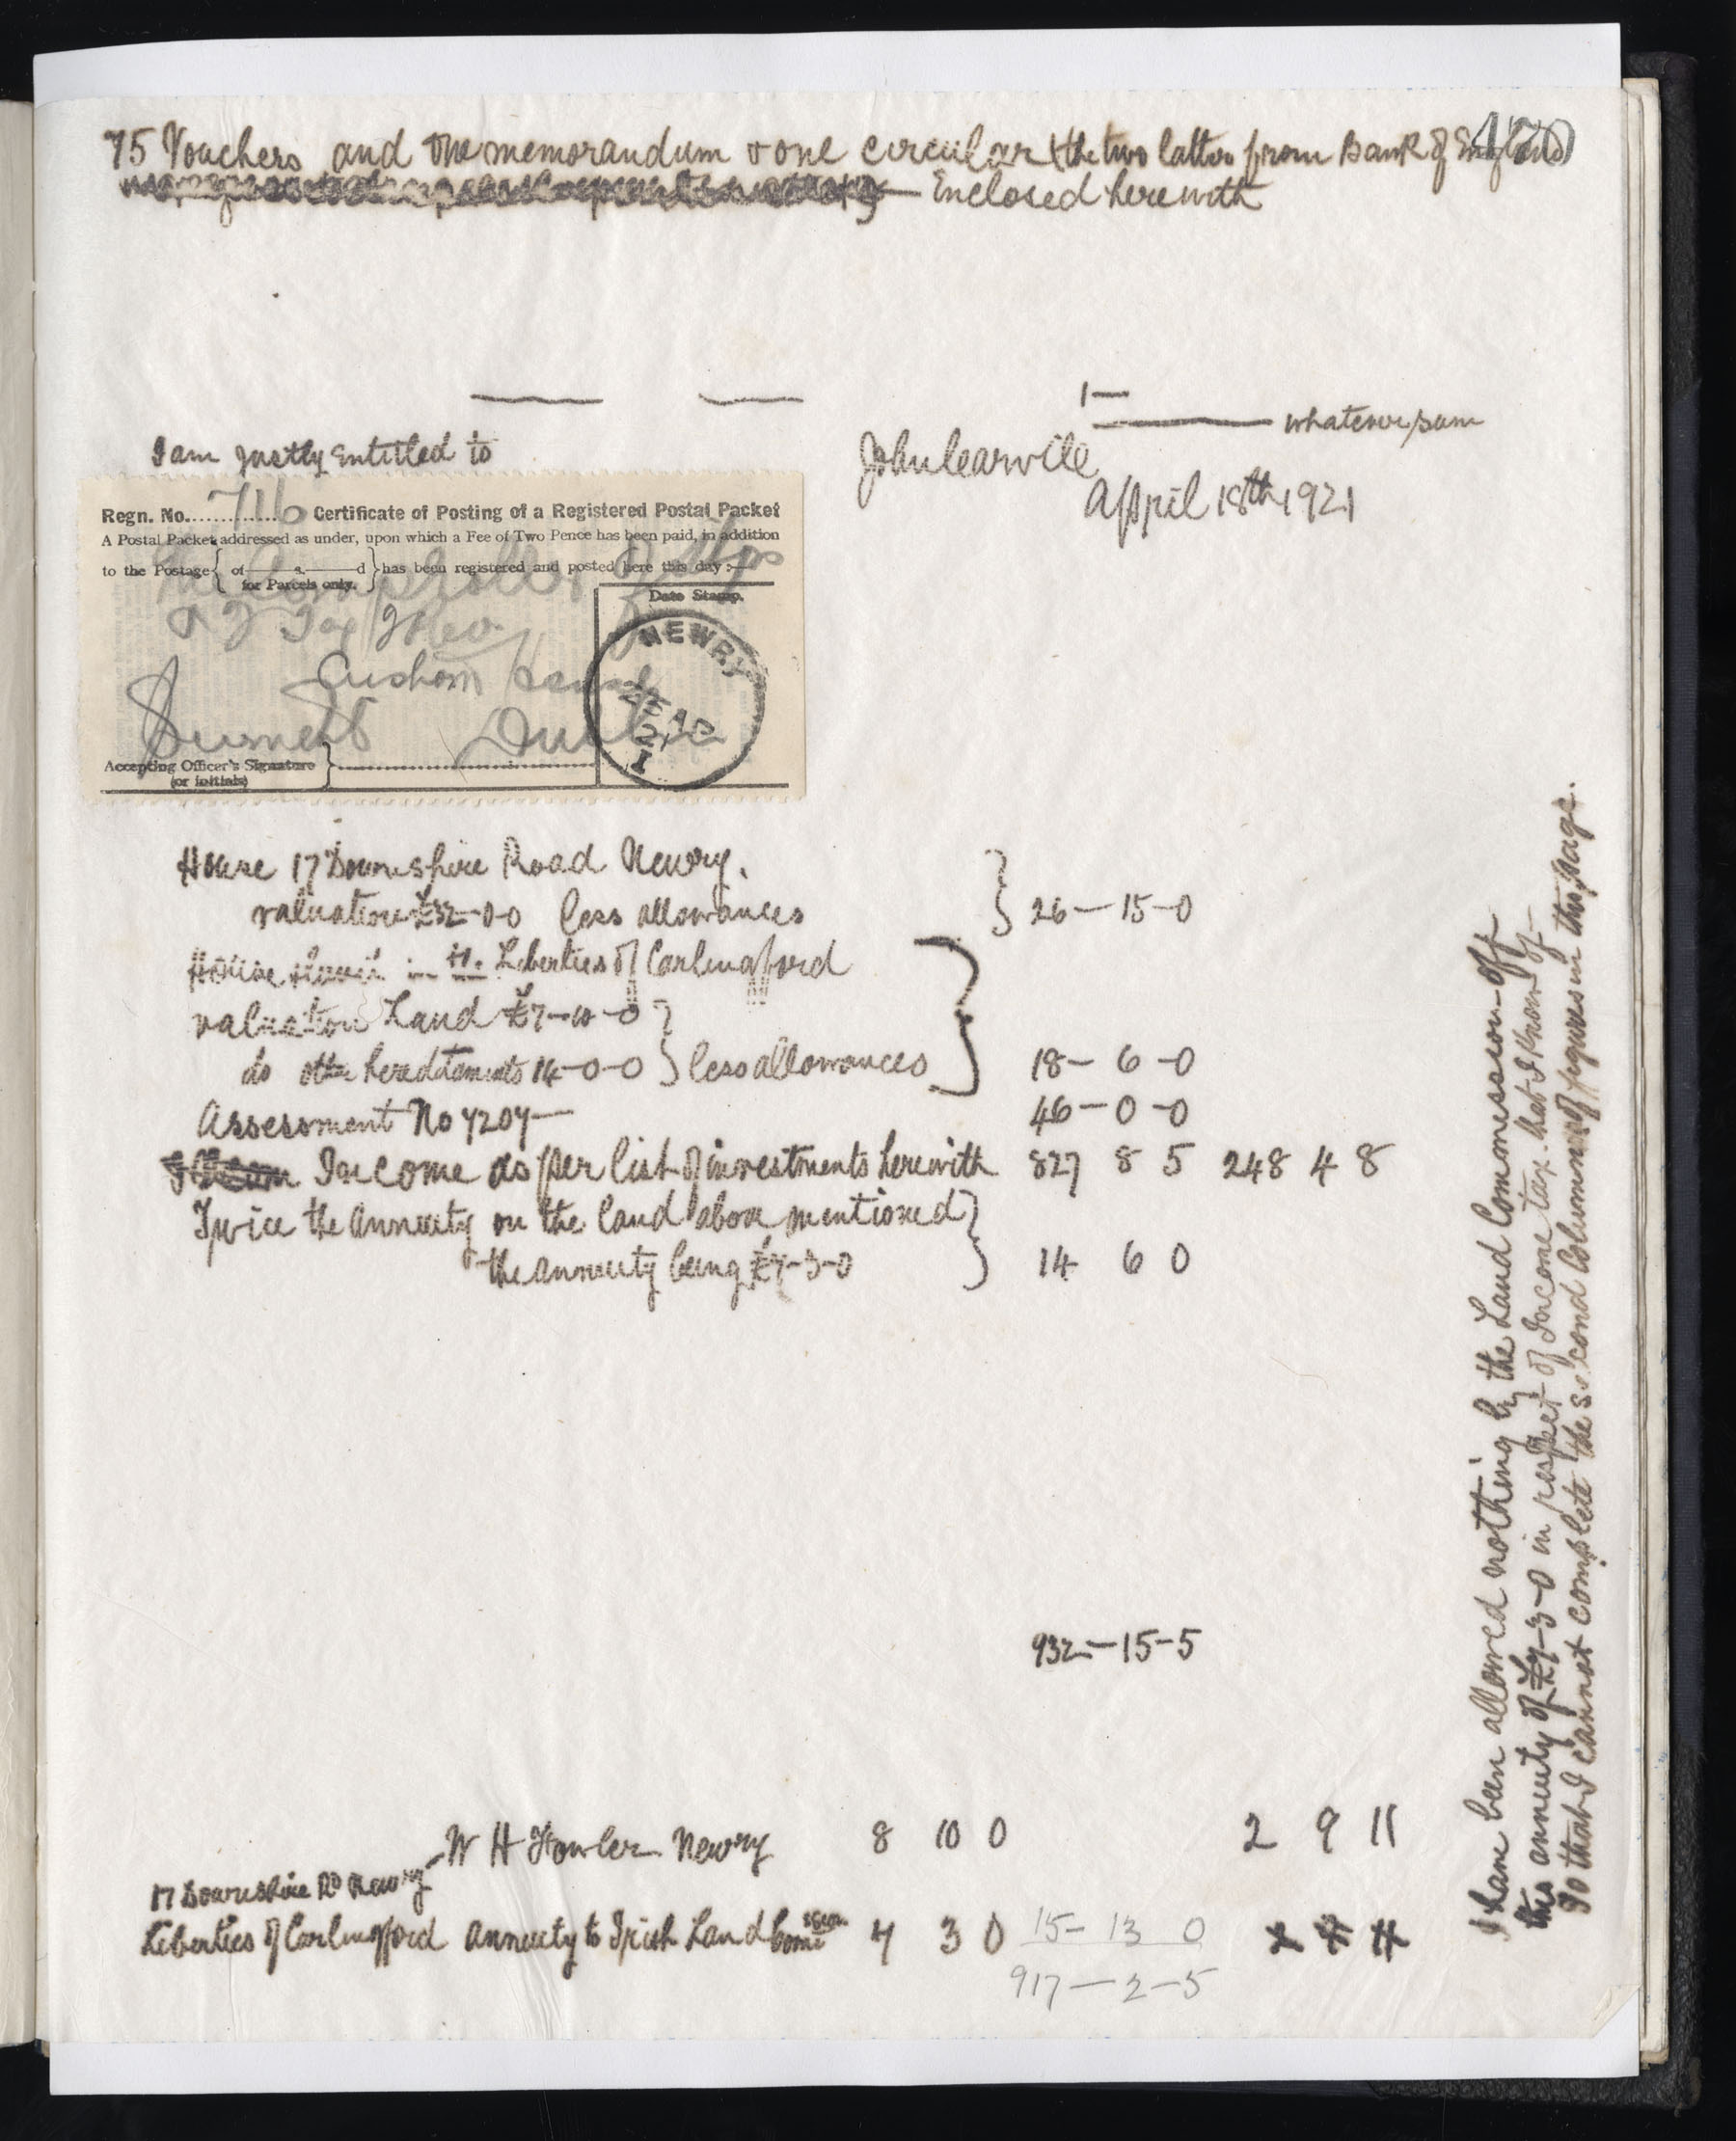 75 Vouchers and One memorandum & one circular (the two latter from Bank of England
Enclosed herewith
whatever sum
I am justly entitled to
April 18th 1921
Regn. No. 716 Certificate of Posting of a Registered Postal Packet
A Postal Packet addressed as under, upon which a Fee of Two Pence has been paid, in addition
to the Postage { of s. d } has been registered and posted here this day:—
for Parcels only.
Date Stamp.
Custom House
NEWRY
25 AP
21
Accepting Officer's Signature
(or initials)
House 17 Downshire Road Newry.
valuation £32-0-0 less allowances } 26—15-0
in the Liberties of Carlingford
valuation Land £7-10-0
do other hereditaments 14-0-0 } less allowances } 18-6-0
Assessment No 7207— 46-0-0
Income as per list of investments herewith 827 8 5 248 4 8
Twice the Annuity on the land above mentioned }
the annuity being £7-3-0 } 14 6 0
932—15-5
W H Fowler Newry 8 10 0 2 9 11
17 Downshire Rd Newry
Liberties of Carlingford annuity to Irish Land Comission 7 3 0 15- 13 0
917—2-5
I have been allowed nothing by the Land Commission off
this annuity of £7-3-0 in respect of Income tax that I know of—
So that I cannot complete the second Column of figures in this page.